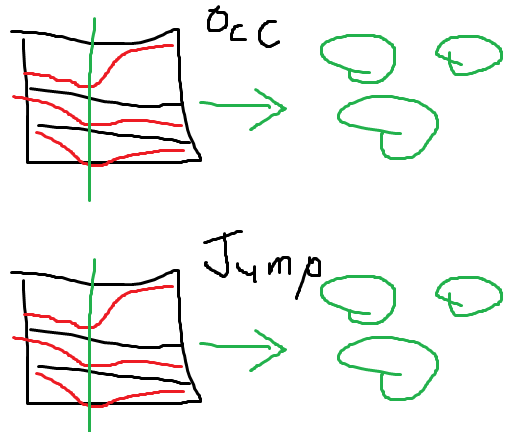 Occ
Jump